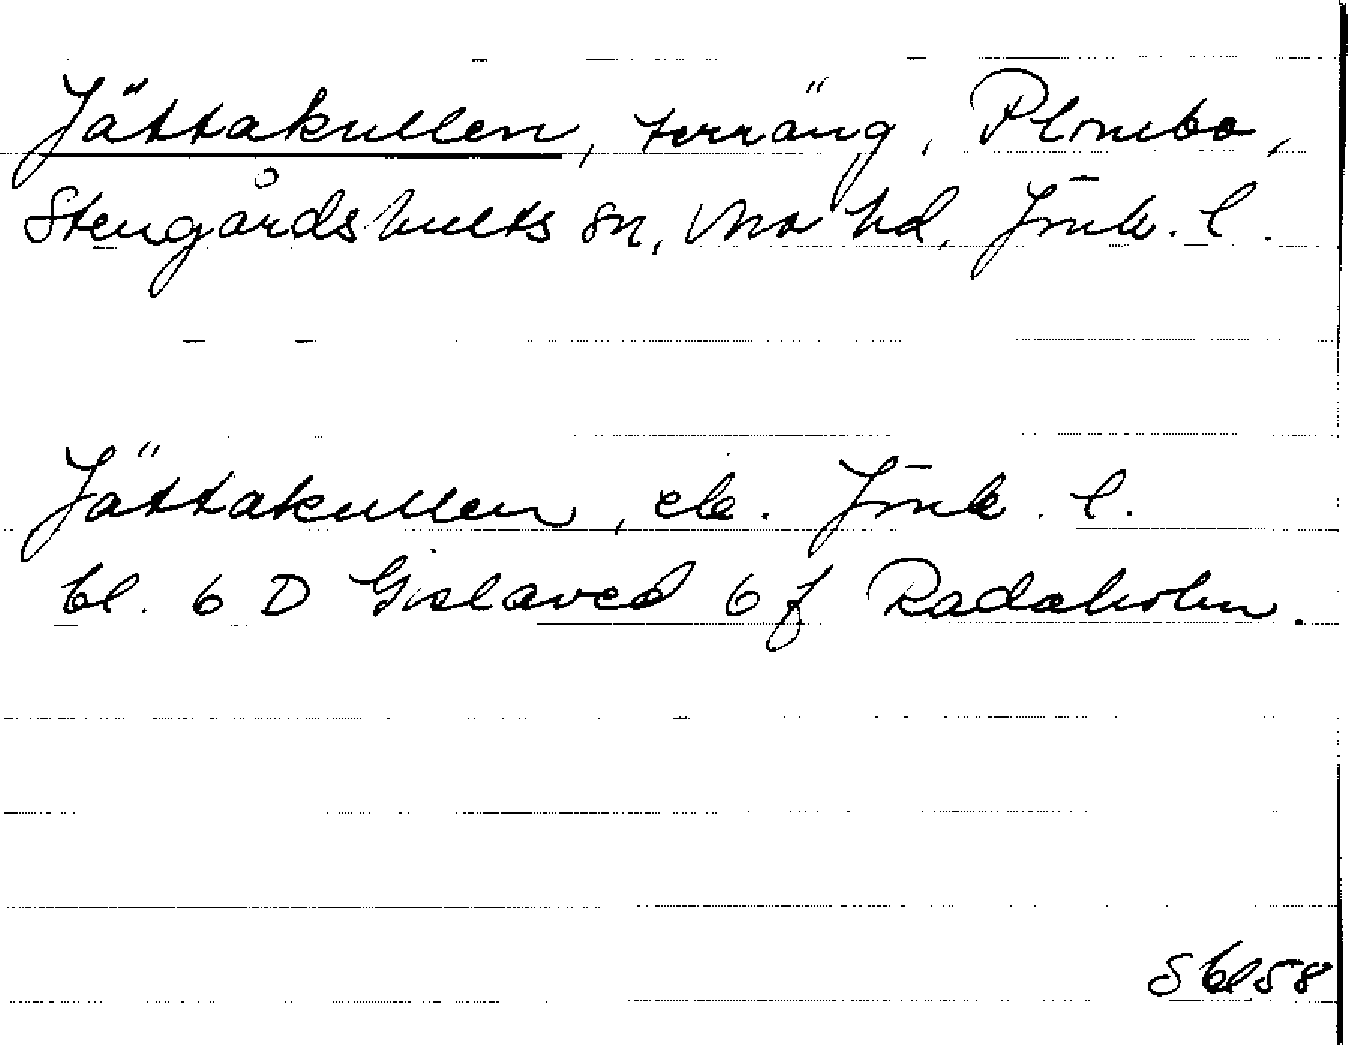 Jättakullen, terräng, Plombo,
Stengårdshults sn, Mo hd, Jönk. l.
Jättakullen, ek. Jönk. l.
bl. 6 D Gislaved 6 f Radaholm.
S bl 58